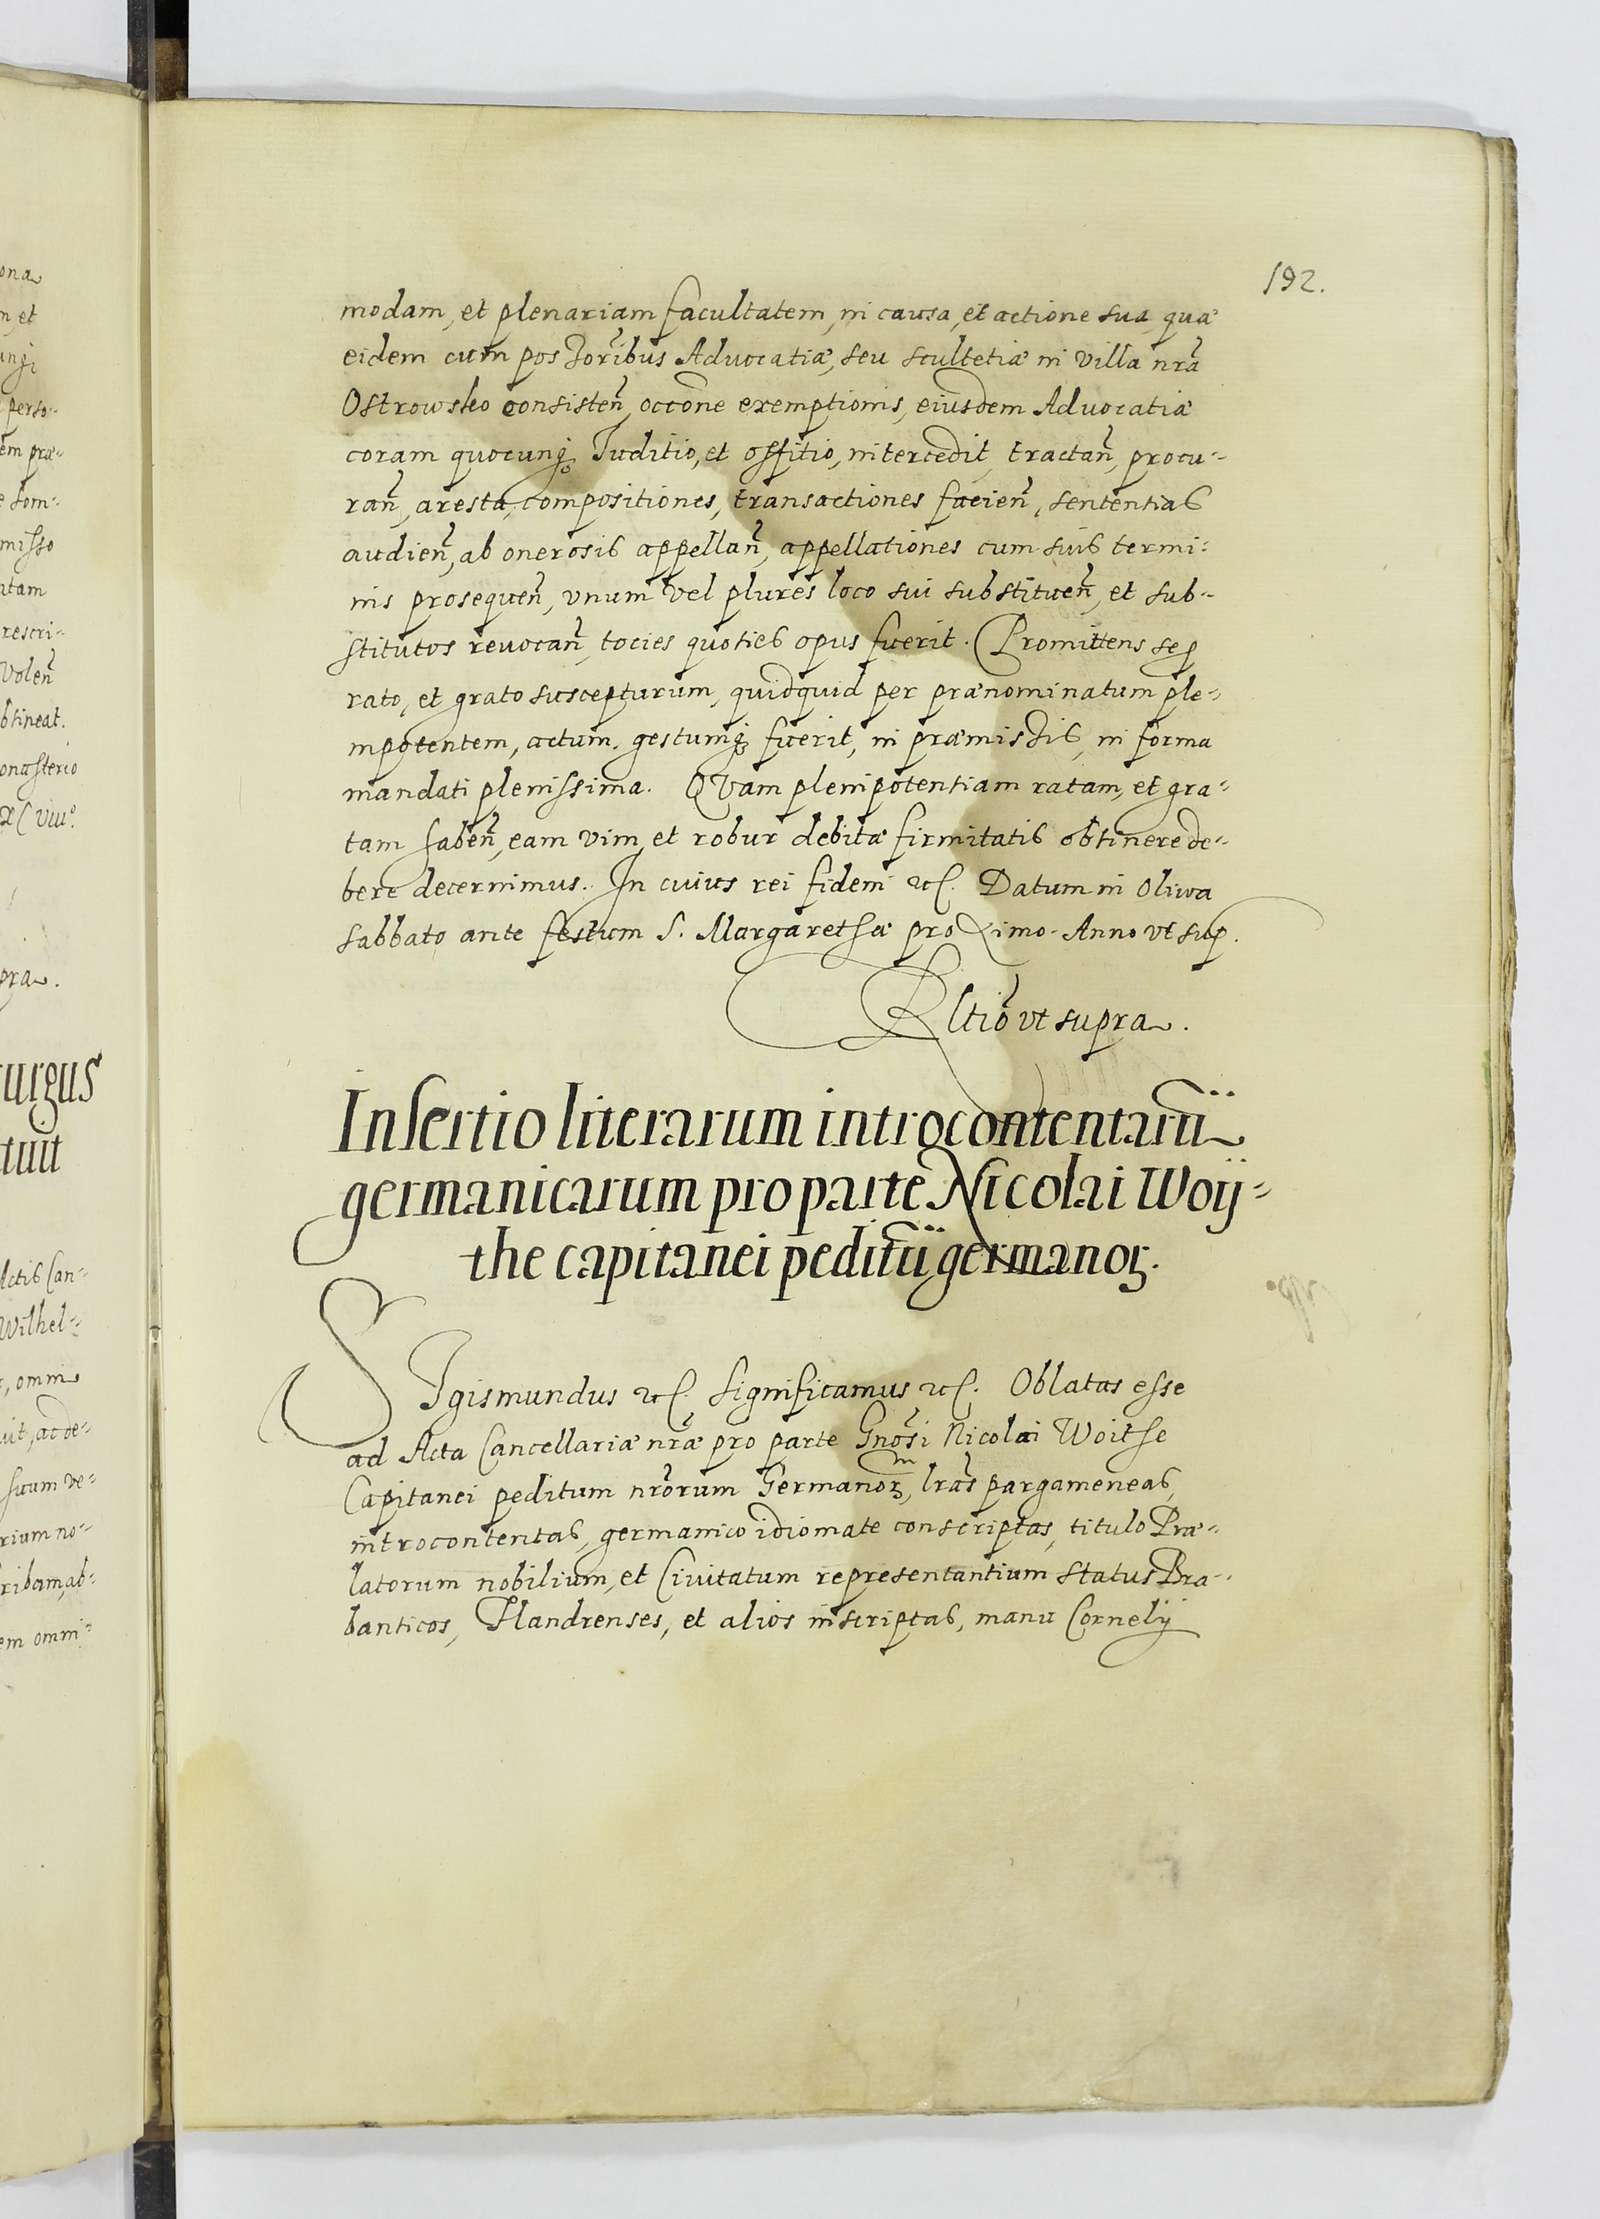 192.
modam, et plenariam facultatem, in causa, et actione sua quæ
eidem cum possessoribus Advocatiæ, seu scultetiæ in villa nrã
Ostrowsko consisteñ, occõne exemptionis, eiusdem Advocatiæ
coram quocunq; Iuditio, et offitio, intercedit, tractañ, procu-
rañ, aresta, compositiones, transactiones facieñ, sententias
audieñ, ab onerosis appellañ, appellationes cum suis termi-
nis prosequeñ, vnum vel plures loco sui substitueñ, et sub-
stitutos reuocañ, tocies quoties opus fuerit. Promittens se
rato, et grato suscepturum, quidquid per prænominatum ple-
nipotentem, actum, gestumq; fuerit, in præmissis, in forma
mandati plenissima. QVam plenipotentiam ratam, et gra-
tam habeñ, eam vim, et robur debitæ firmitatis obtinere de-
bere decernimus. In cuius rei fidem etc. Datum in Oliwa
sabbato ante festum S. Margarethæ proximo. Anno vt sup.
Rltiõ vt supra.
Insertio literarum introcontentarũ
germanicarum pro parte Nicolai Woÿ-
the capitanei peditũ germanoꝝ.
SIgismundus etc. Significamus etc. Oblatas esse
ad Acta Cancellariæ nræ pro parte Gnosi Nicolai Woithe
Capitanei peditum nrõrum Germanoꝝ, lrãs pargameneas,
introcontentas, germanico idiomate conscriptas, titulo Præ-
latorum nobilium, et Ciuitatum representantium status Bra-
banticos, Flandrenses, et alios inscriptas, manu Cornelÿ
ona
n, et
perso-
em præ-
misso
rescri-
Voleñ
btineat.
onasterio
pra.
urgus
tuit
Actis Can-
Wilhel-
omni
uit, ac de-
suum ve-
rium no-
em omni-